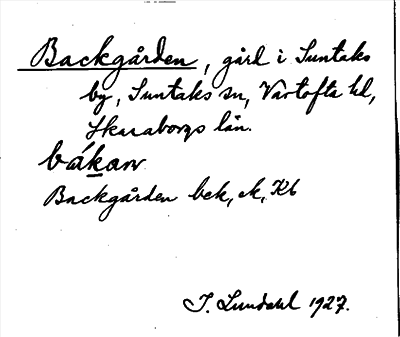 Backgården, gård i Suntaks
by, Suntaks sn, Vartofta hd,
Skaraborgs län.
bákan
Backgården bek, ek, Kb
I. Lundahl 1927.